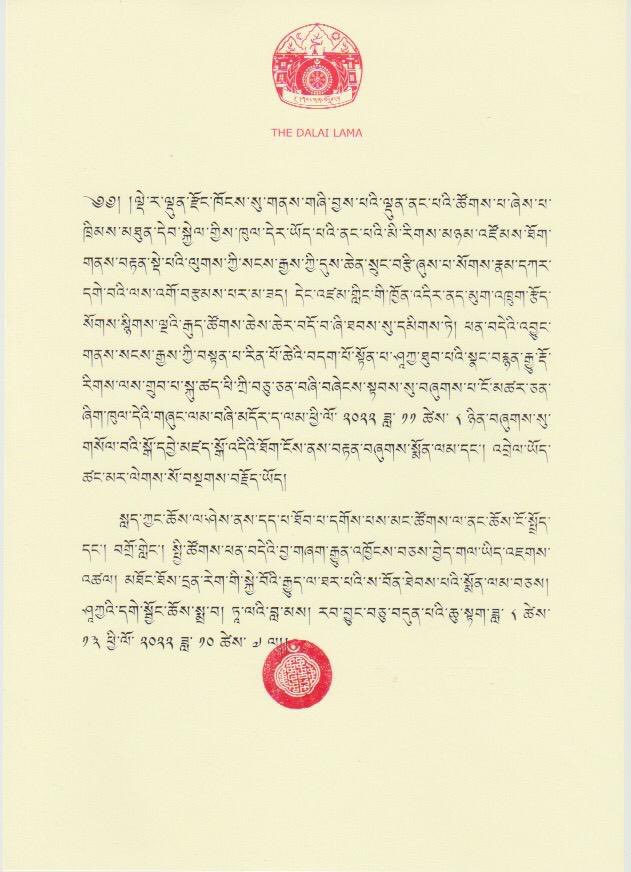 THE DALAI LAMA
༄༅། །ལྡེ་ར་ལྡུན་རྫོང་ཁོངས་སུ་གནས་གཞི་བྱས་པའི་ལྡུན་ནང་པའི་ཚོགས་པ་ཞེས་པ་
ཁྲིམས་མཐུན་དེབ་སྐྱེལ་གྱིས་ཁུལ་དེར་ཡོད་པའི་ནང་པའི་མི་རིགས་མཉམ་འཛོམས་ཐོག་
གནས་བརྟན་སྡེ་པའི་ལུགས་ཀྱི་སངས་རྒྱས་ཀྱི་དུས་ཆེན་སྲུང་བརྩི་ཞུས་པ་སོགས་རྣམ་དཀར་
དགེ་བའི་ལས་འགོ་བརྩམས་པར་མ་ཟད། དེང་འཛམ་གླིང་གི་ཁྱོན་འདིར་ནད་མུག་འཁྲུག་རྩོད་
སོགས་སྙིགས་ལྔའི་རྒུད་ཚོགས་ཆེས་ཆེར་བདོ་བ་ཞི་ཐབས་སུ་དམིགས་ཏེ། ཕན་བདེའི་འབྱུང་
གནས་སངས་རྒྱས་ཀྱི་བསྟན་པ་རིན་པོ་ཆེའི་བདག་པོ་སྟོན་པ་ཤཱཀྱ་ཐུབ་པའི་སྣང་བརྙན་རྒྱུ་རྡོ་
རིགས་ལས་གྲུབ་པ་སྐུ་ཚད་ཕི་ཀྲི་བཅུ་ཅན་བཞི་བཞེངས་སྟབས་སུ་བཞུགས་པ་ངོ་མཚར་ཅན་
ཞིག་ཁུལ་དེའི་གཞུང་ལམ་བཞི་མདོར་ད་ལམ་ཕྱི་ལོ་ ༢༠༢༢ ཟླ་ ༡༡ ཚེས་ ༨ ཉིན་བཞུགས་སུ་
གསོལ་བའི་སྒོ་དབྱེ་མཛད་སྒོ་འདིའི་ཐོག་ངོས་ནས་བརྟན་བཞུགས་སྨོན་ལམ་དང་། འབྲེལ་ཡོད་
ཚང་མར་ལེགས་སོ་བསྔགས་བརྗོད་ཡོད།
སླད་ཀྱང་ཆོས་ལ་ཤེས་ནས་དད་པ་ཐོབ་པ་དགོས་པས་མང་ཚོགས་ལ་ནང་ཆོས་ངོ་སྤྲོད་
དང་། བགྲོ་གླེང་། སྤྱི་ཚོགས་ཕན་བདེའི་བྱ་གཞག་རྒྱུན་འཁྱོངས་བཅས་བྱེད་གལ་ཡིད་འཇགས་
འཚལ། མཐོང་ཐོས་དྲན་རེག་གི་སྐྱེ་བོའི་རྒྱུད་ལ་ཐར་པའི་ས་བོན་ཐེབས་པའི་སྨོན་ལམ་བཅས།
ཤཱཀྱའི་དགེ་སློང་ཆོས་སྨྲ་བ། ཏཱ་ལའི་བླ་མས། རབ་བྱུང་བཅུ་བདུན་པའི་ཆུ་སྟག་ཟླ་ ༨ ཚེས་
༡༣ ཕྱི་ལོ་ ༢༠༢༢ ཟླ་ ༡༠ ཚེས་ ༧ ལ།།